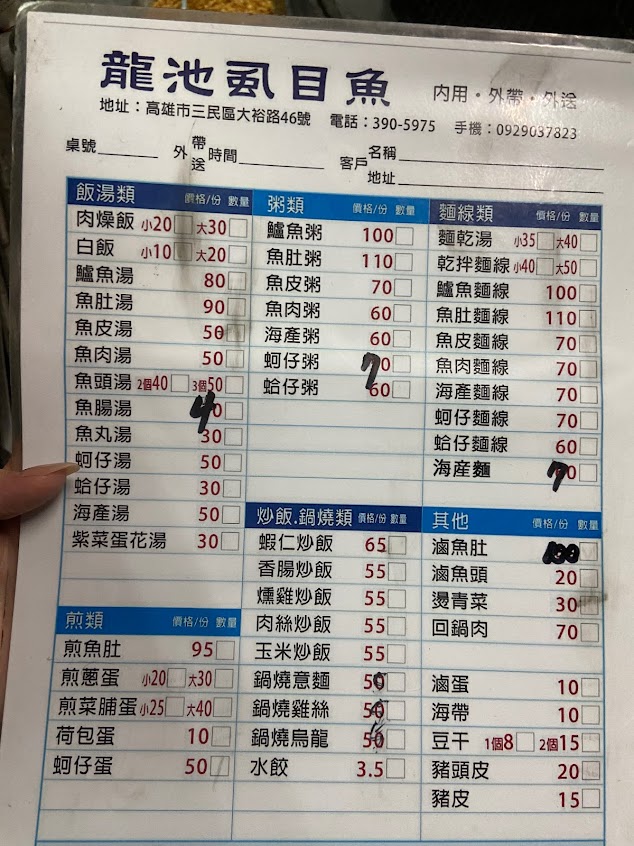 龍池虱目魚
內用・外帶・外送
地址：高雄市三民區大裕路46號 電話：390-5975 手機：0929037823
桌號 外帶送 時間 客戶 名稱 地址
飯湯類 價格/份 數量
肉燥飯 小20 大30
白飯 小10 大20
鱸魚湯 80
魚肚湯 90
魚皮湯 50
魚肉湯 50
魚頭湯 2個40 3個50
魚腸湯 40
魚丸湯 30
蚵仔湯 50
蛤仔湯 30
海產湯 50
紫菜蛋花湯 30
煎類 價格/份 數量
煎魚肚 95
煎蔥蛋 小20 大30
煎菜脯蛋 小25 大40
荷包蛋 10
蚵仔蛋 50
粥類 價格/份 數量
鱸魚粥 100
魚肚粥 110
魚皮粥 70
魚肉粥 60
海產粥 60
蚵仔粥 70
蛤仔粥 60
炒飯.鍋燒類 價格/份 數量
蝦仁炒飯 65
香腸炒飯 55
燻雞炒飯 55
肉絲炒飯 55
玉米炒飯 55
鍋燒意麵
鍋燒雞絲
鍋燒烏龍
水餃 3.5
麵線類 價格/份 數量
麵乾湯 小35 大40
乾拌麵線 小40 大50
鱸魚麵線 100
魚肚麵線 110
魚皮麵線 70
魚肉麵線 70
海產麵線 70
蚵仔麵線 70
蛤仔麵線 60
海產麵 70
其他 價格/份 數量
滷魚肚 100
滷魚頭 20
燙青菜 30
回鍋肉 70
滷蛋 10
海帶 10
豆干 1個8 2個15
豬頭皮 20
豬皮 15